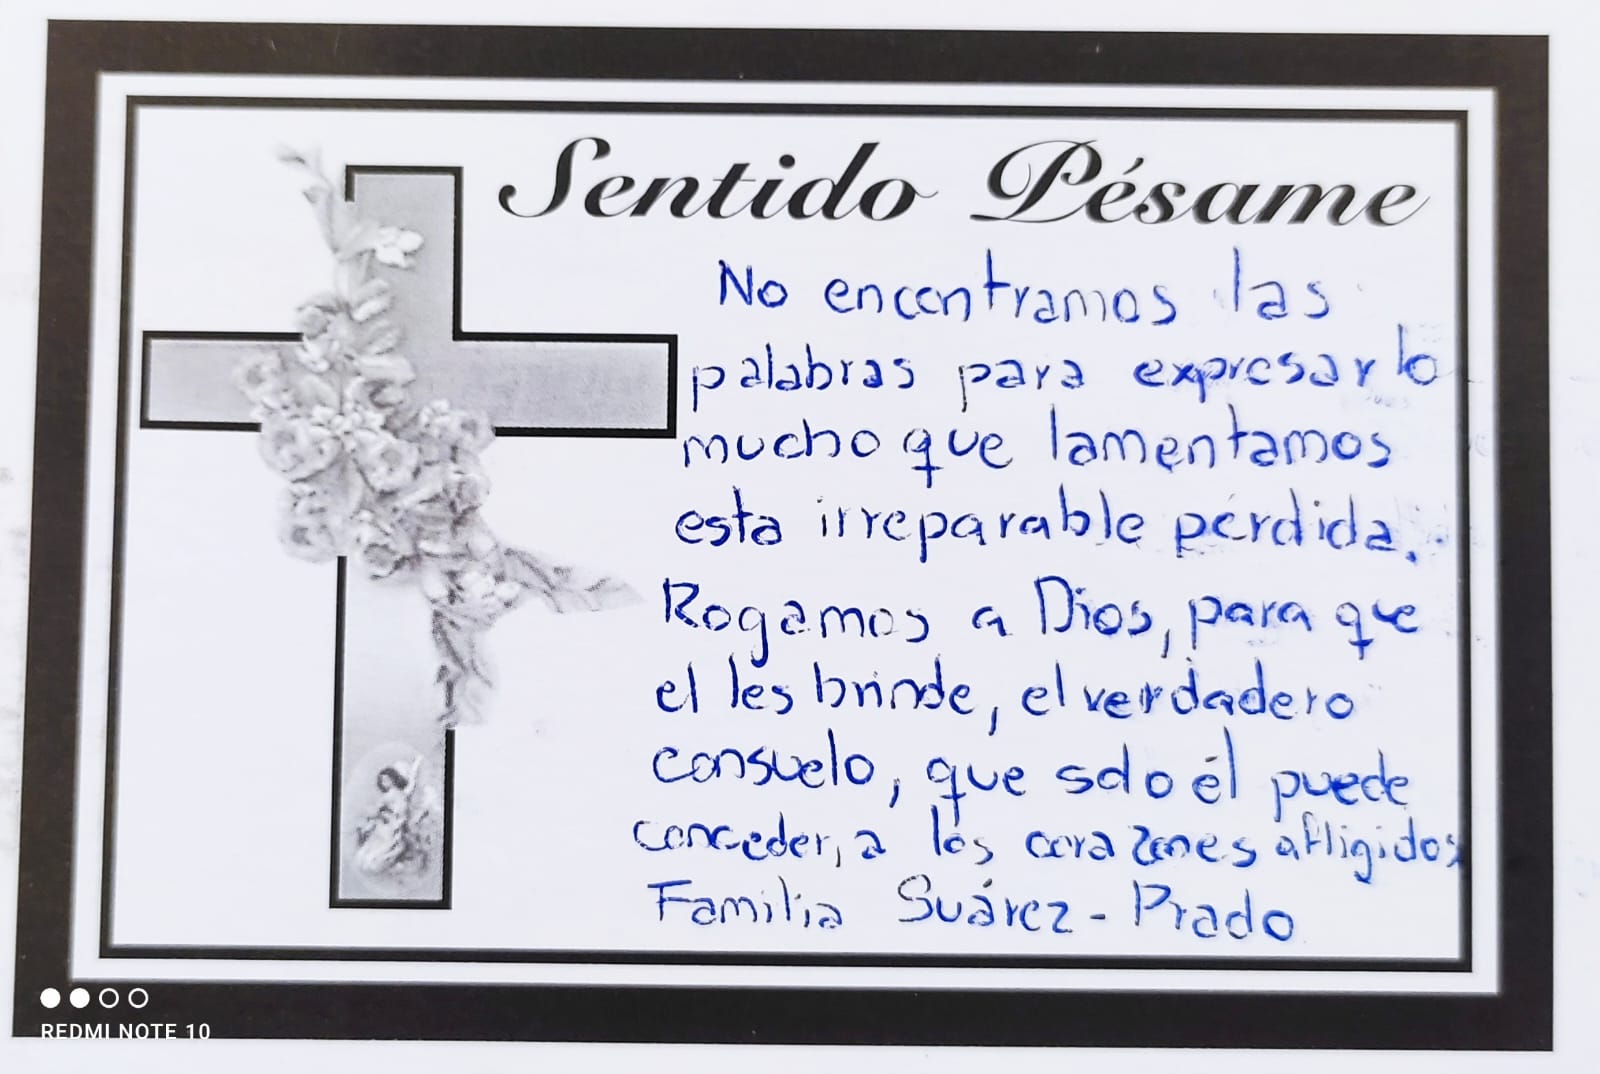 Sentido Pésame
No encontramos las
palabras para expresar lo
mucho que lamentamos
esta irreparable pérdida.
Rogamos a Dios, para que
el les brinde, el verdadero
consuelo, que solo él puede
conceder, a los corazones afligidos
Familia Suárez - Prado
REDMI NOTE 10